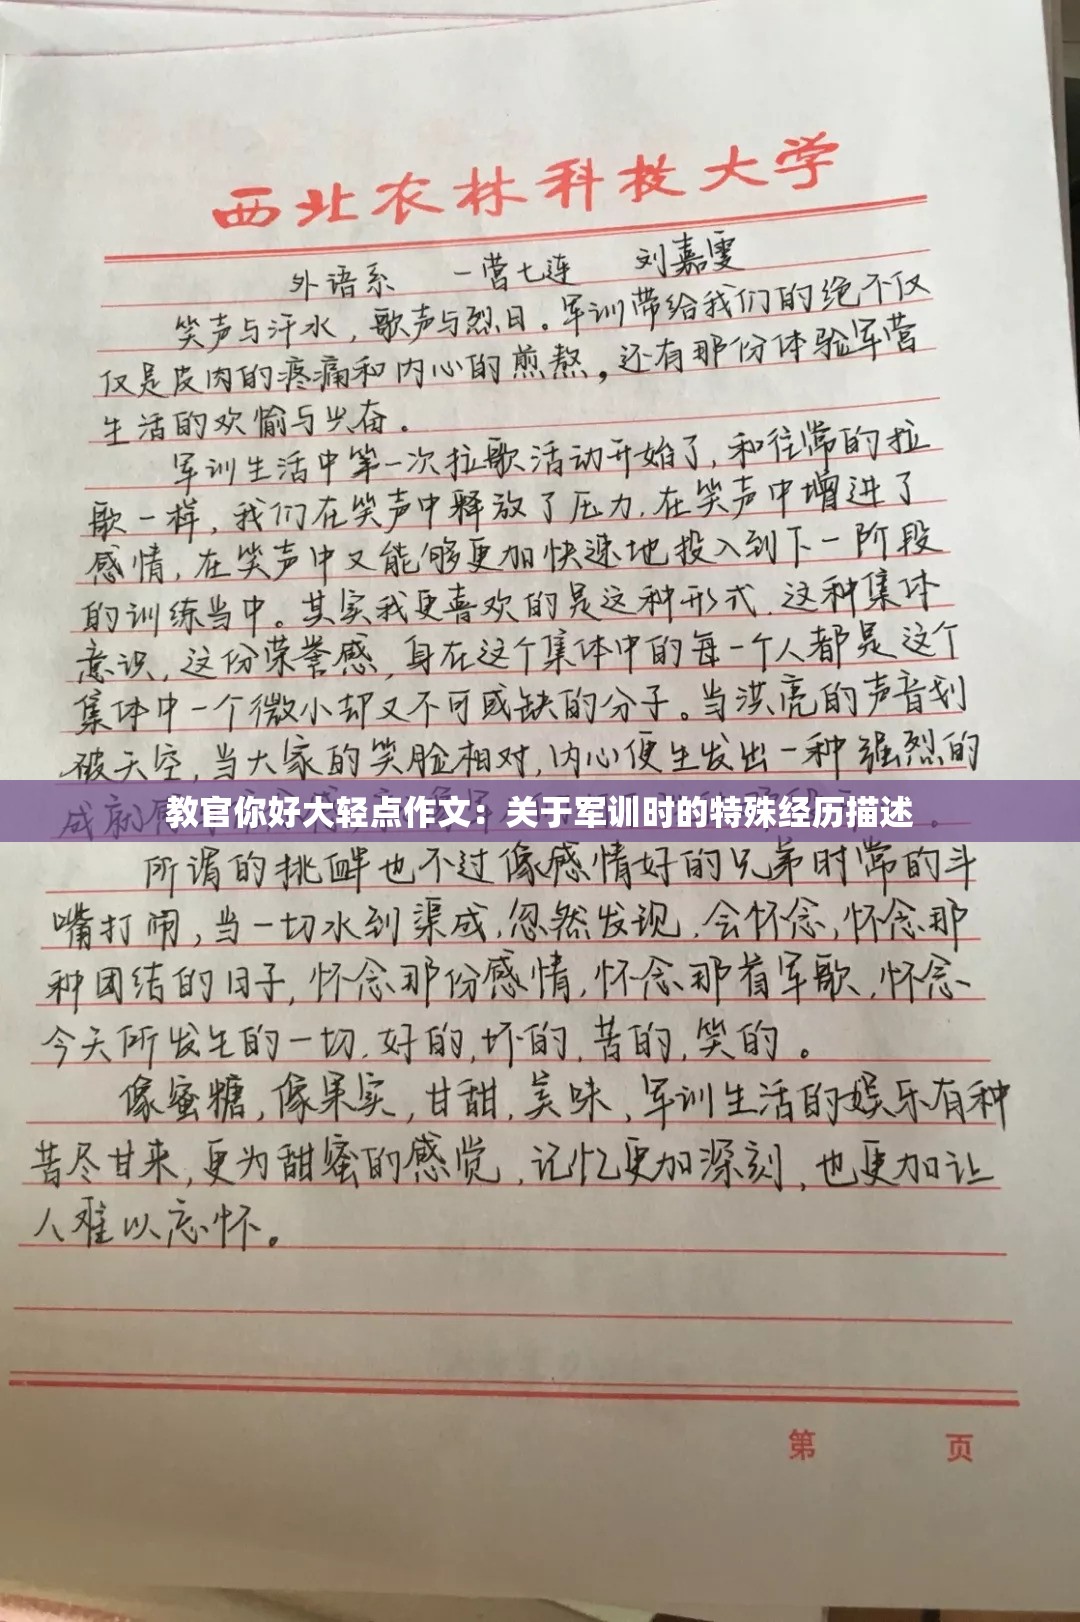 西北农林科技大学
外语系 一营七连 刘嘉雯
笑声与汗水，歌声与烈日。军训带给我们的绝不仅
仅是皮肉的疼痛和内心的煎熬，还有那份体验军营
生活的欢愉与兴奋。
军训生活中第一次拉歌活动开始了，和往常的拉
歌一样，我们在笑声中释放了压力，在笑声中增进了
感情，在笑声中又能够更加快速地投入到下一阶段
的训练当中。其实我更喜欢的是这种形式，这种集体
意识，这份荣誉感，身在这个集体中的每一个人都是这个
集体中一个微小却又不可或缺的分子。当洪亮的声音划
破天空，当大家的笑脸相对，内心便生发出一种强烈的
成就
教官你好大轻点作文：关于军训时的特殊经历描述
所谓的挑衅也不过像感情好的兄弟时常的斗
嘴打闹，当一切水到渠成，忽然发现，会怀念，怀念那
种团结的日子，怀念那份感情，怀念那首军歌，怀念
今天所发生的一切，好的，坏的，苦的，笑的。
像蜜糖，像果实，甘甜，美味，军训生活的娱乐有种
苦尽甘来，更为甜蜜的感觉，记忆更加深刻，也更加让
人难以忘怀。
第 页